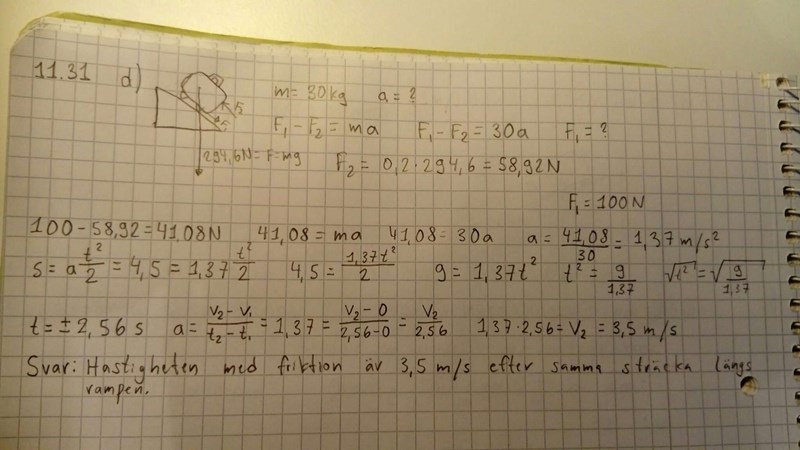 11.31 d) m = 30kg a = ?
F₁ - F₂ = ma F₁ - F₂ = 30a F₁ = ?
294,6N = F = mg F₂ = 0,2 · 294,6 = 58,92N
F₁ = 100N
100 - 58,92 = 41,08N 41,08 = ma 41,08 = 30a a = 41,08/30 = 1,37 m/s²
s = a t²/2 = 4,5 = 1,37 t²/2 4,5 = 1,37t²/2 9 = 1,37t² t² = 9/1,37 √t² = √(9/1,37)
t = ±2,56 s a = (V₂ - V₁)/(t₂ - t₁) = 1,37 = (V₂ - 0)/(2,56 - 0) = V₂/2,56 1,37 · 2,56 = V₂ = 3,5 m/s
Svar: Hastigheten med friktion är 3,5 m/s efter samma sträcka längs
rampen.